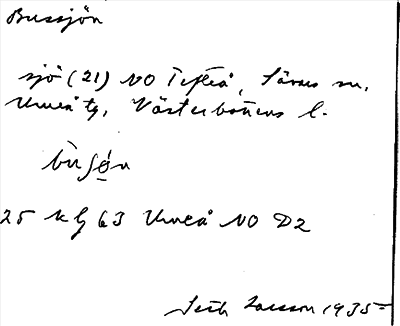 Bussjön
sjö (21) NO Tefteå, Sävars sn,
Umeå tg, Västerbottens l.
bùʃǫ́n
25 kg 63 Umeå NO D2
Seth Larsson 1935